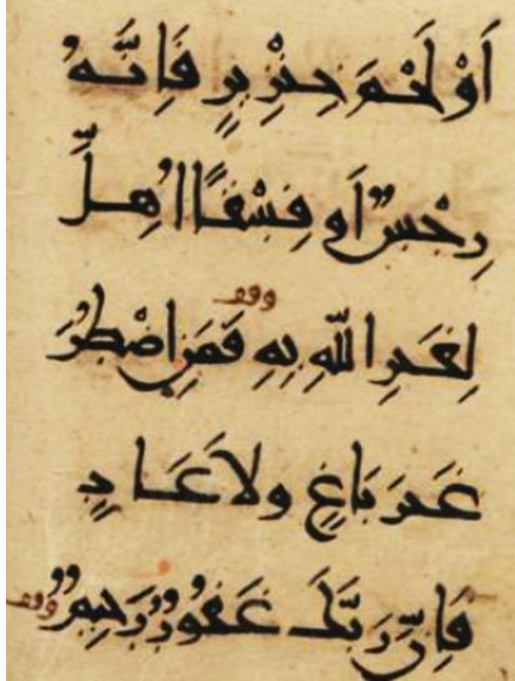 اَوْ لَحْمَ خِنْزِيرٍ فَاِنَّهُ
رِجْسٌ اَو فِسْقًا اُهِلَّ
وقف
لِغَيرِ اللّهِ بِهِ فَمَنِ اضْطُرَ
غَيرَ بَاغٍ ولَا عَادٍ
فَاِنَّ رَبَّكَ غَفُورٌ رَحِيمٌ وقف